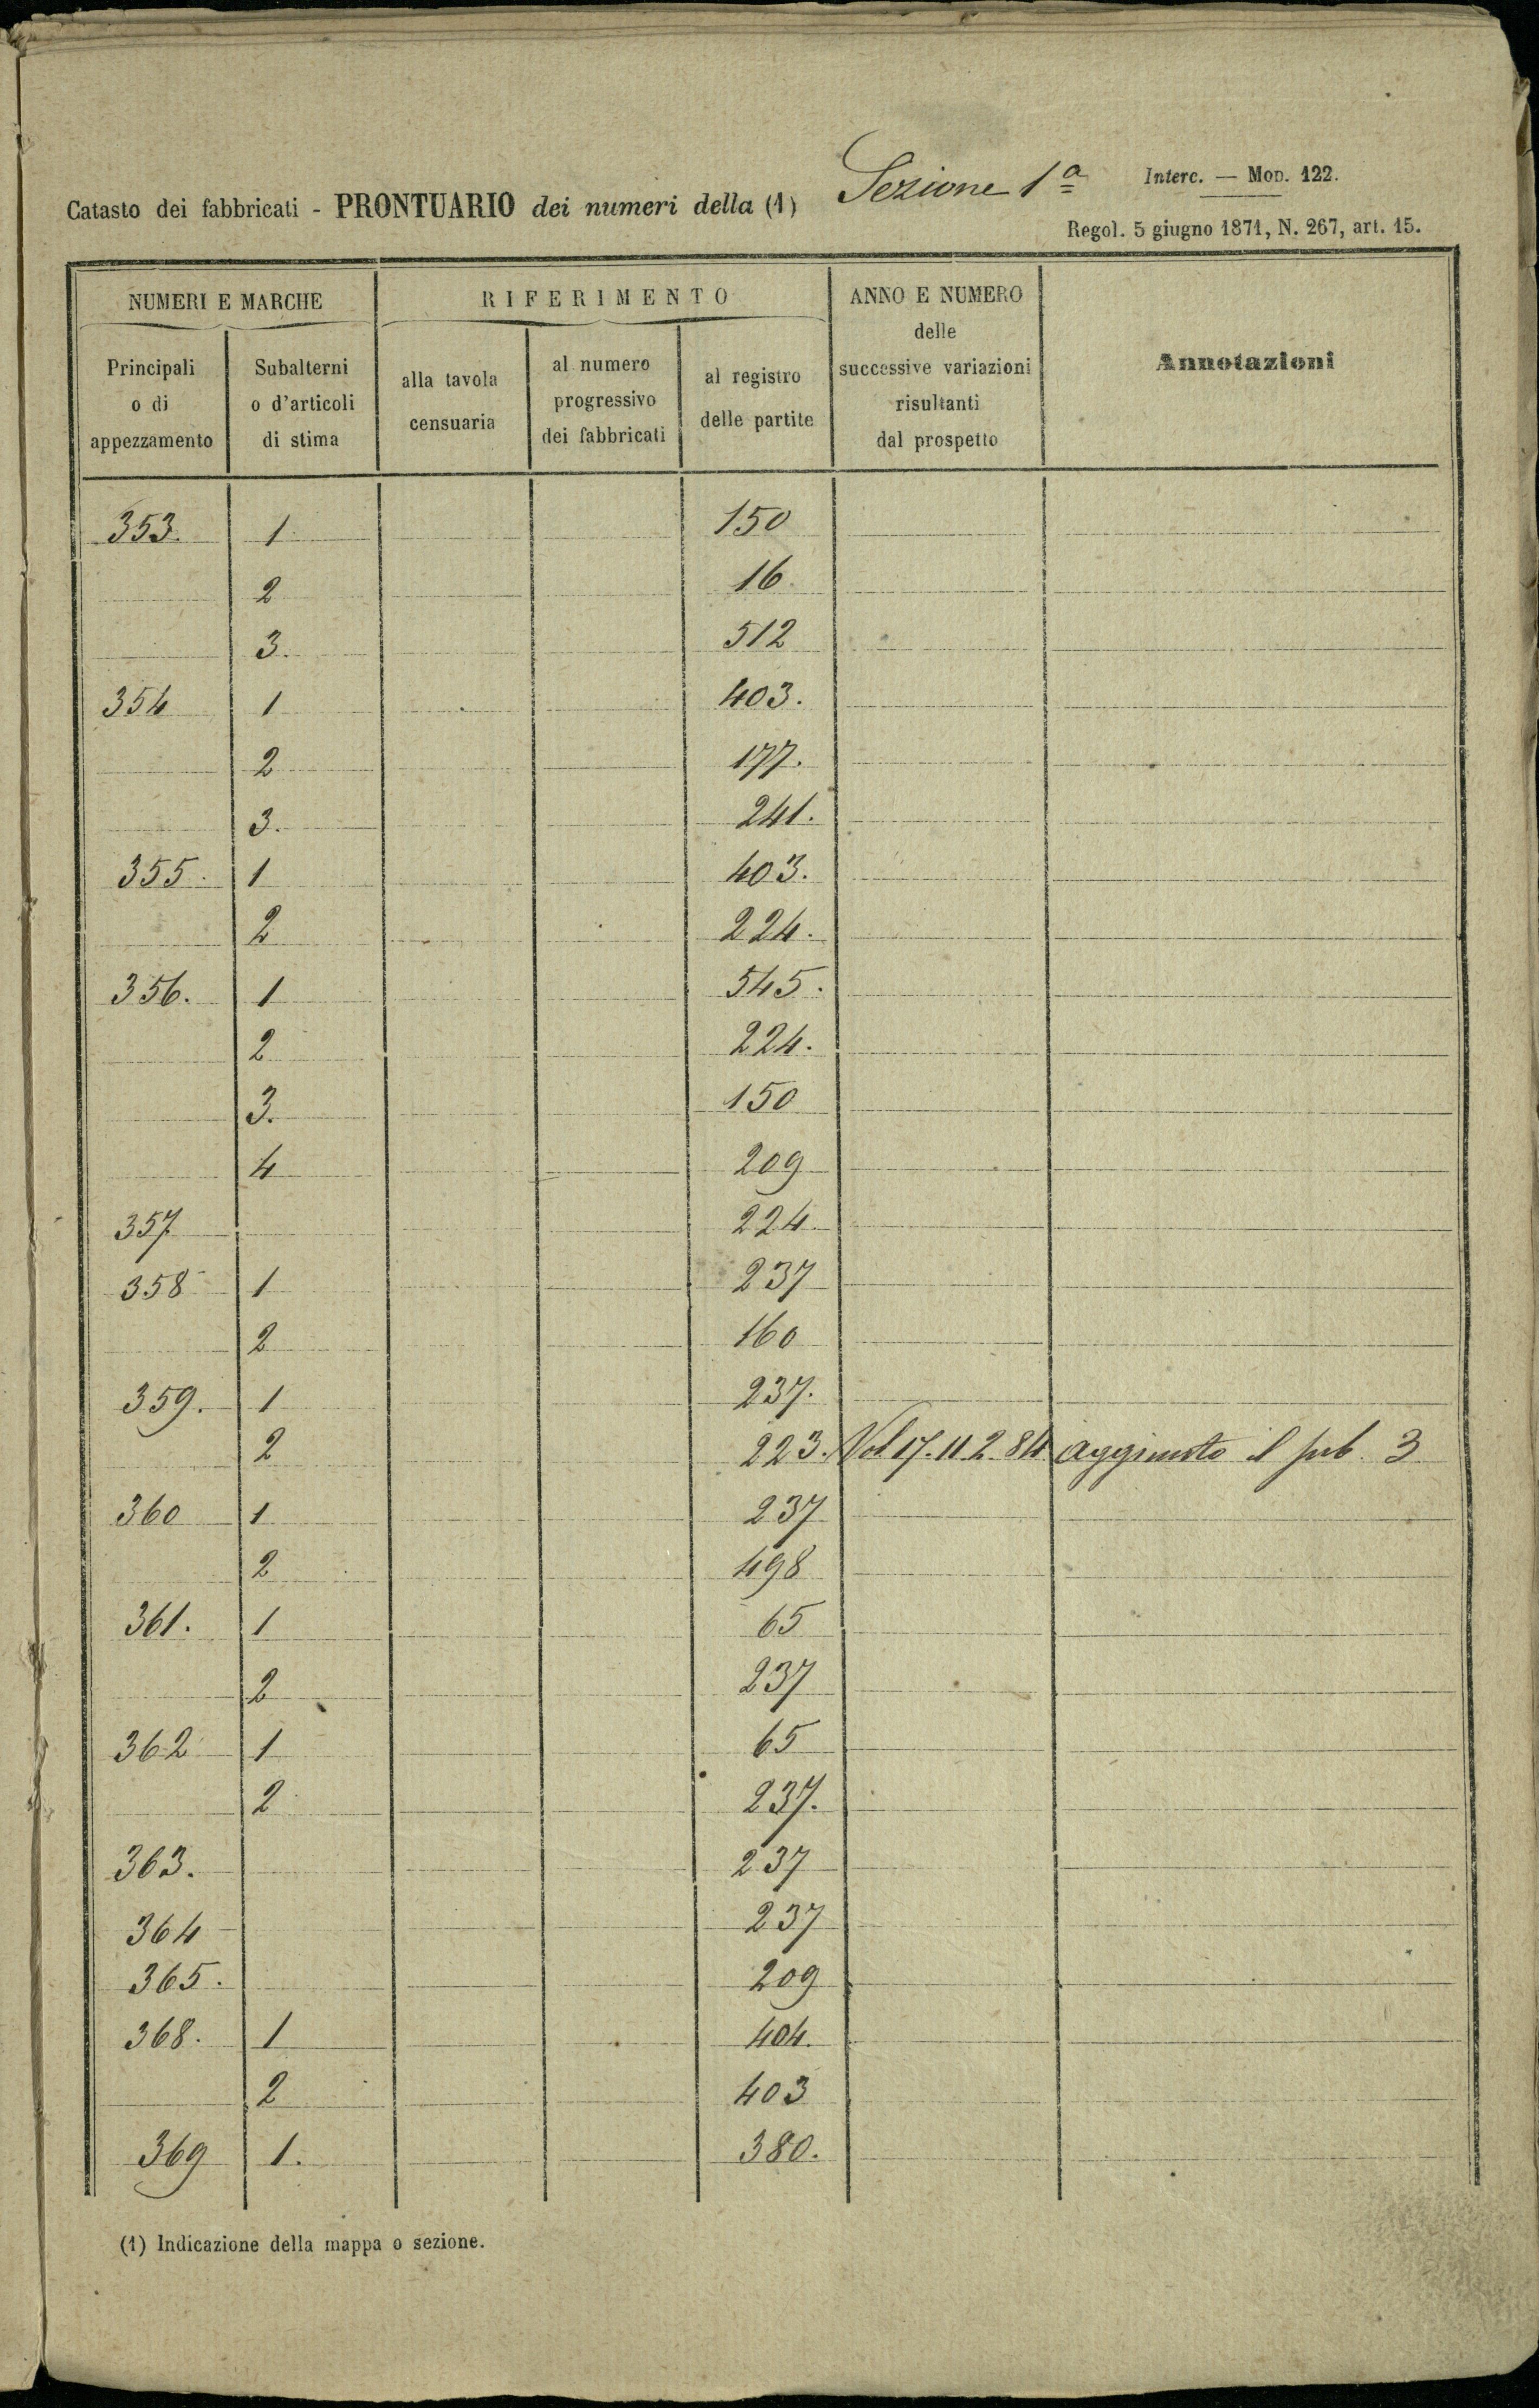 Catasto dei fabbricati - PRONTUARIO dei numeri della (1) Sezione 1ª
Interc. — Mod. 122.
Regol. 5 giugno 1871, N. 267, art. 15.
NUMERI E MARCHE
RIFERIMENTO
ANNO E NUMERO delle successive variazioni risultanti dal prospetto
Annotazioni
Principali o di appezzamento
Subalterni o d'articoli di stima
alla tavola censuaria
al numero progressivo dei fabbricati
al registro delle partite
353. 1 150
2 16
3. 512
354 1 403.
2 177.
3. 241.
355. 1 403.
2 224.
356. 1 545.
2 224.
3. 150
4 209
357 224
358 1 237
2 160
359. 1 237.
2 223. Vol 17. 11 2 84 aggiunto il sub. 3
360 1 237
2 498
361. 1 65
2 237
362 1 65
2 237.
363. 237
364 237
365. 209
368. 1 404.
2 403
369 1. 380.
(1) Indicazione della mappa o sezione.